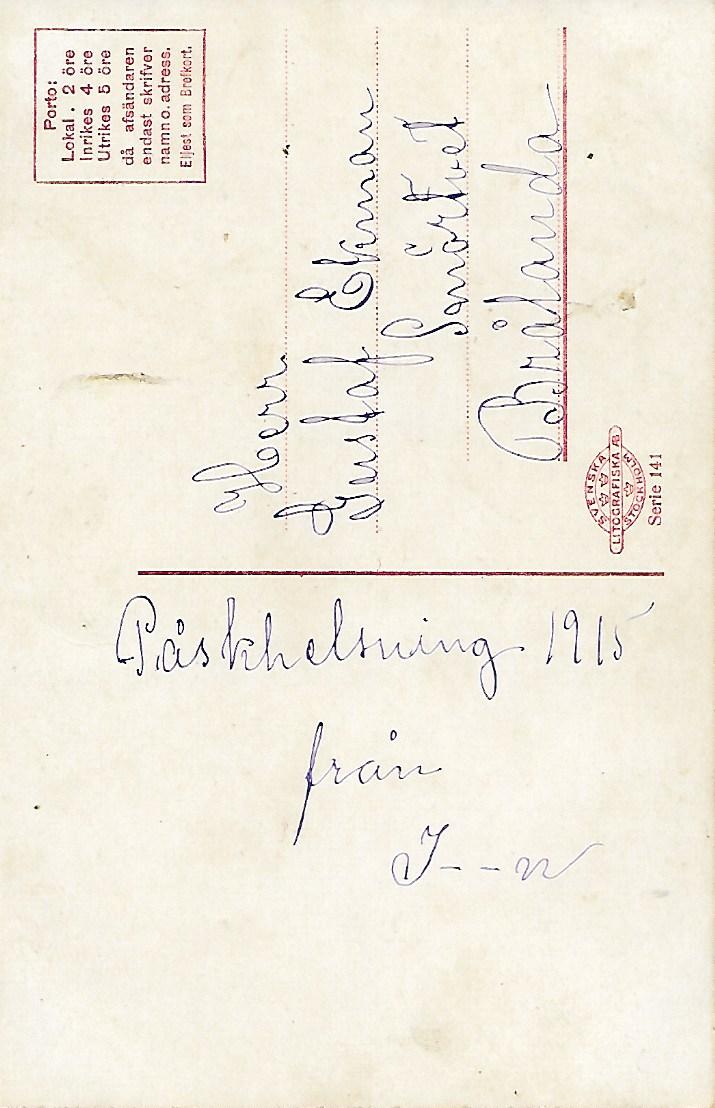 Porto:
Lokal. 2 öre
Inrikes 4 öre
Utrikes 5 öre
då afsändaren
endast skrifver
namn o. adress.
Eljest som Brefkort.
Herr
Gustaf Ekman
Smörtvet
Brålanda
SVENSKA
LITOGRAFISKA AB
STOCKHOLM
Serie 141
Påskhelsning 1915
från
J--n